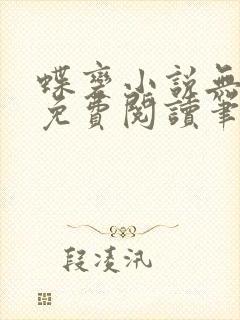 蝶變小說無
免費閱讀筆
段凌汛